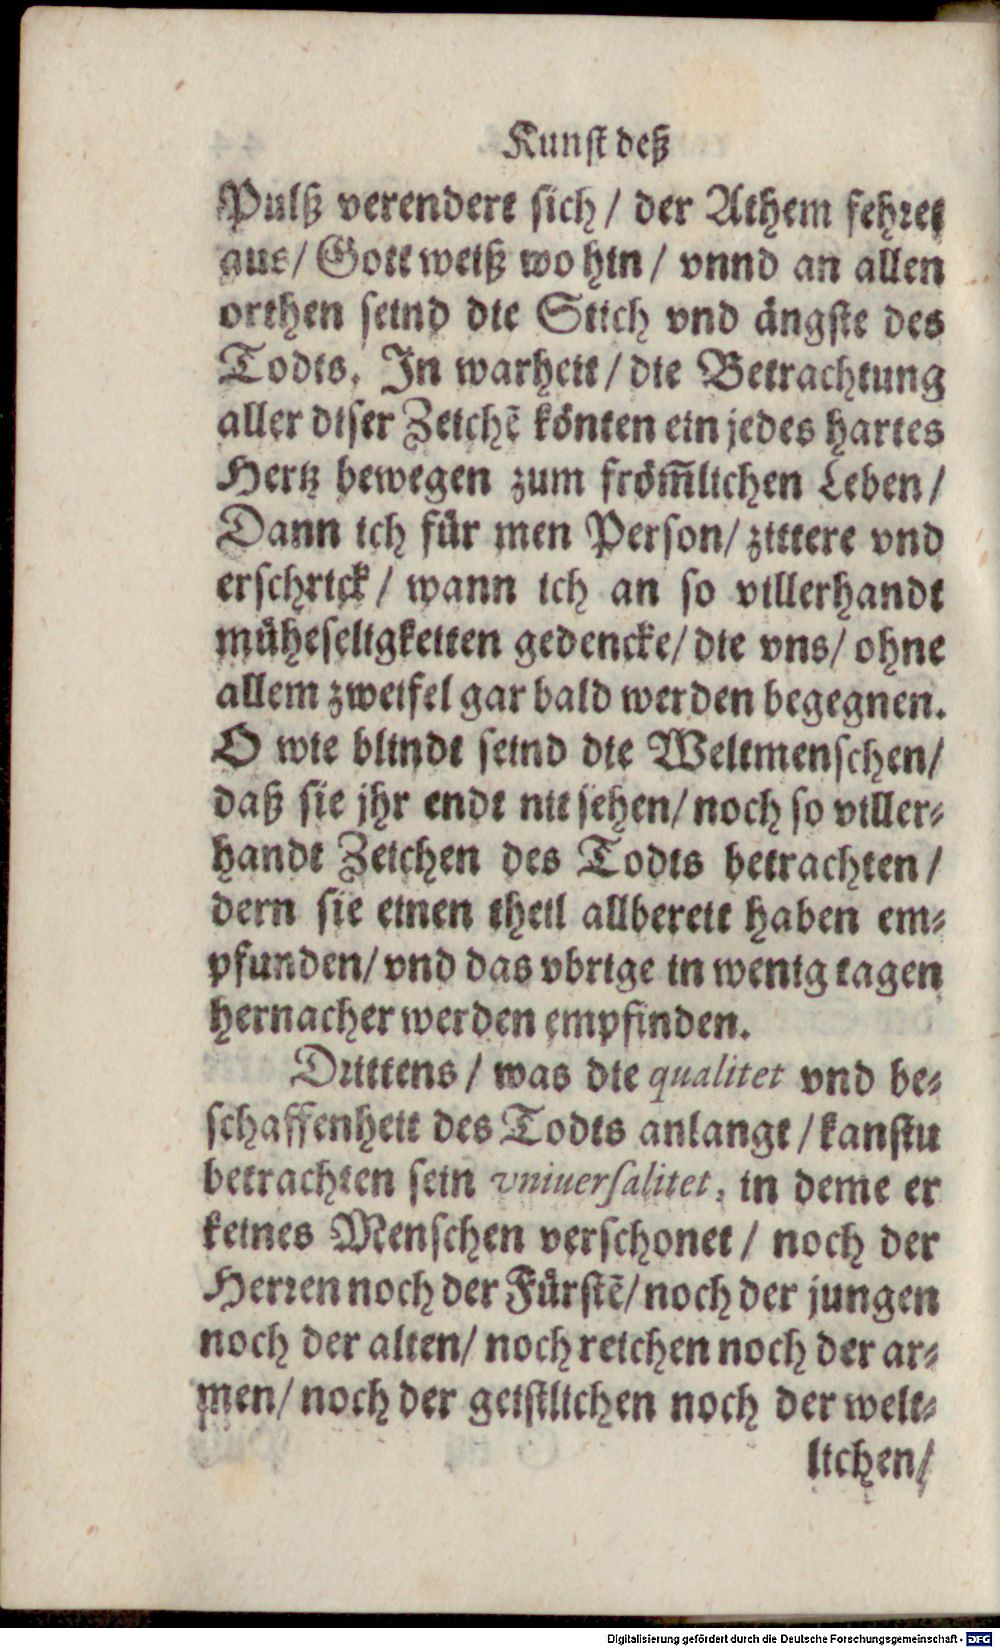 Kunst deß
Pulß verendert sich / der Athem fehret
aus / Gott weiß wo hin / vnnd an allen
orthen seind die Stich vnd ängste des
Todts. In warheit / die Betrachtung
aller diser Zeichẽ könten ein jedes hartes
Hertz bewegen zum fröm̃lichen Leben /
Dann ich für men Person / zittere vnd
erschrick / wann ich an so villerhandt
müheseligkeiten gedencke / die vns / ohne
allem zweifel gar bald werden begegnen.
O wie blindt seind die Weltmenschen /
daß sie jhr endt nit sehen / noch so viller-
handt Zeichen des Todts betrachten /
dern sie einen theil allbereit haben em-
pfunden / vnd das vbrige in wenig tagen
hernacher werden empfinden.
Drittens / was die qualitet vnd be-
schaffenheit des Todts anlangt / kanstu
betrachten sein vniuersalitet, in deme er
keines Menschen verschonet / noch der
Herren noch der Fürstẽ / noch der jungen
noch der alten / noch reichen noch der ar-
men / noch der geistlichen noch der welt-
lichen /
Digitalisierung gefördert durch die Deutsche Forschungsgemeinschaft - DFG